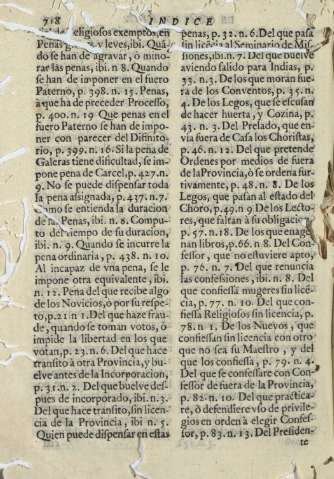 718 INDICE
eligiosos exemptos, en
Penas graves y leves, ibi. Quã-
do se han de agravar, ò mino-
rar las penas, ibi. n. 8. Quando
se han de imponer en el fuero
Paterno, p. 398. n. 15. Penas,
à que ha de preceder Processo,
p. 400. n. 19 Que penas en el
fuero Paterno se han de impo-
ner con parecer del Difinito-
rio, p. 399. n. 16. Si la pena de
Galeras tiene dificultad, se im-
pone pena de Carcel, p. 427. n.
9. No se puede dispensar toda
la pena assignada, p. 437. n. 7.
Como se entienda la duracion
de la Penas, ibi. n. 8. Compu-
to del tiempo de su duracion,
ibi. n. 9. Quando se incurre la
pena ordinaria, p. 438. n. 10.
Al incapaz de vna pena, se le
impone otra equivalente, ibi.
n. 12. Pena del que recibe algo
de los Novicios, ò por su respe-
to, p. 21 n 1. Del que haze frau-
de, quando se toman votos, ò
impide la libertad en los que
votan, p. 23. n. 6. Del que hace
transito à otra Provincia, y bu-
elve antes de la Incorporacion,
p. 31. n. 2. Del que buelve des-
pues de incorporado, ibi. n. 3.
Del que hace transito, sin licen-
cia de la Provincia, ibi n. 5.
Quien puede dispensar en estas
penas, p. 32. n. 6. Del que pasa
sin licẽcia al Seminario de Mis-
siones, ibi. n. 7. Del que buelve
aviendo salido para Indias, p.
33. n. 3. De los que moran fue-
ra de los Conventos, p. 35. n.
4. De los Legos, que se escusan
de hacer huerta, y Cozina, p.
43. n. 3. Del Prelado, que en-
via fuera de Casa los Choristas,
p. 46. n. 12. Del que pretende
Ordenes por medios de fuera
de la Provincia, ò se ordena fur-
tivamente, p. 48. n. 8. De los
Legos, que pasan al estado del
Choro, p. 49. n 9 De los Lecto-
res, que faltan à su obligacion,
p. 57. n. 18. De los que enage-
nan libros, p. 66. n 8. Del Con-
fessor, que no estuviere apto,
p. 76. n. 7. Del que renuncia
las confessiones, ibi. n. 8. Del
que confiessa mugeres sin licẽ-
cia, p. 77. n. 10. Del que con-
fiessa Religiosos sin licencia, p.
78. n 1. De los Nuevos, que
confiessan sin licencia con otro
que no sea su Maestro, y del
que los confiessa, p. 79. n. 4.
Del que se confessare con Con-
fessor de fuera de la Provincia,
p. 82. n. 10. Del que practica-
re, ò defendiere vso de privile-
gios en orden à elegir Confes-
sor, p. 83. n. 13. Del Presiden-
te